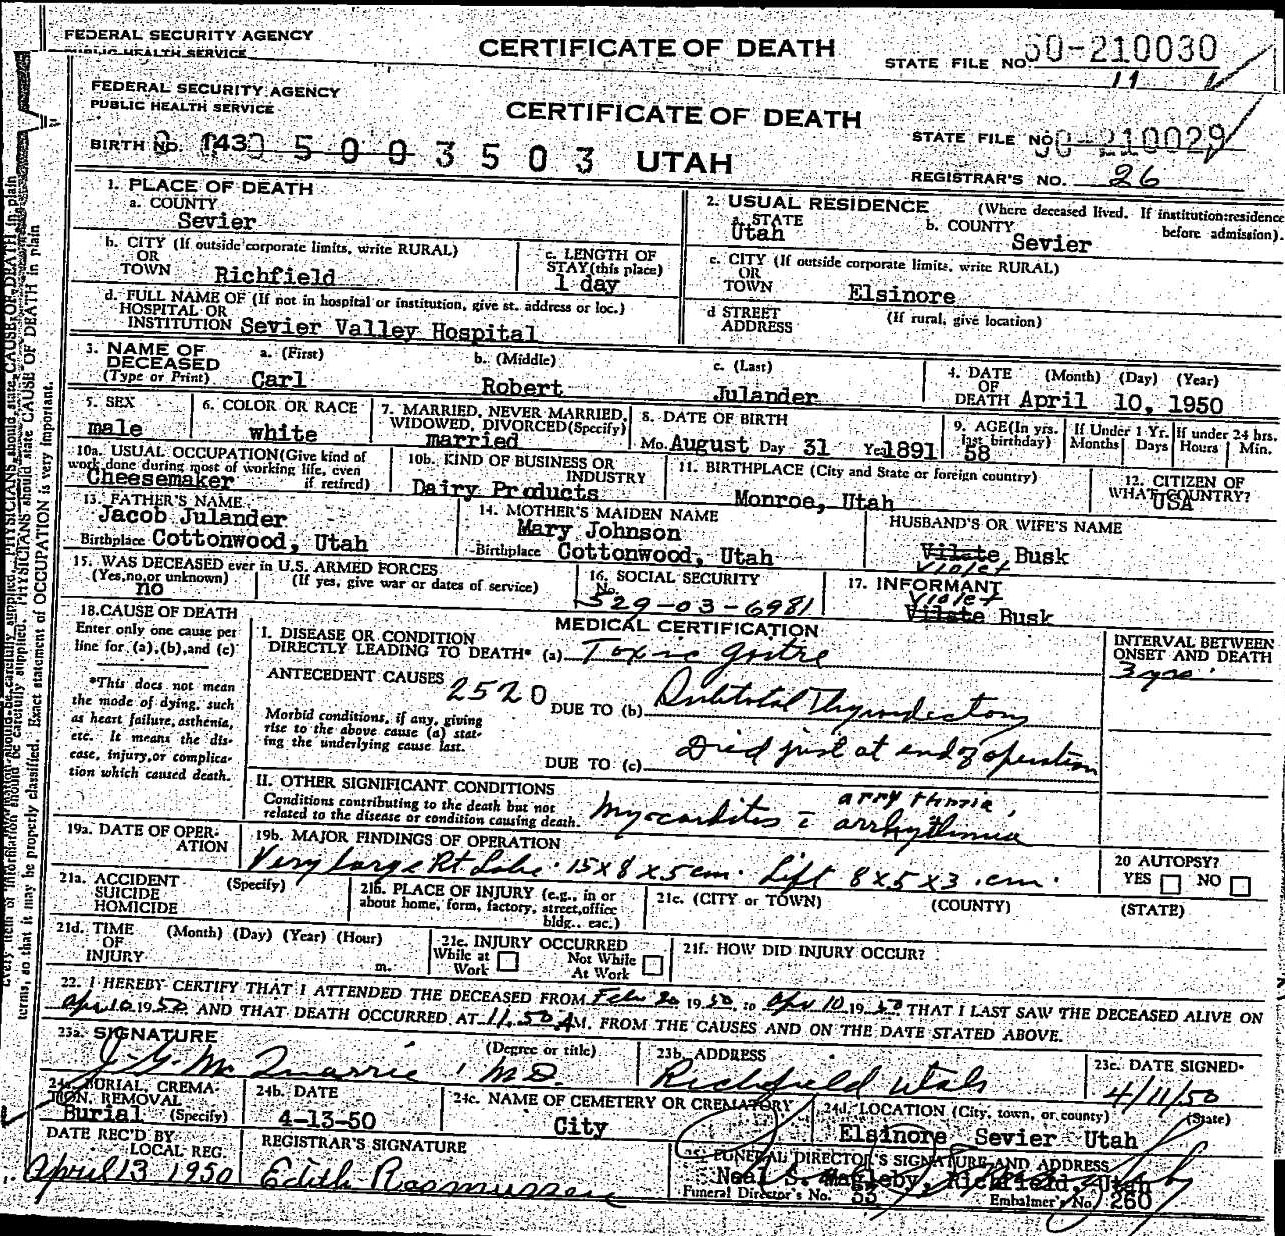 FEDERAL SECURITY AGENCY
PUBLIC HEALTH SERVICE
CERTIFICATE OF DEATH
STATE FILE NO. 50-210030
11
FEDERAL SECURITY AGENCY
PUBLIC HEALTH SERVICE
CERTIFICATE OF DEATH
STATE FILE NO. 50-210029
BIRTH NO. 143 5003503 UTAH
REGISTRAR'S NO. 26
1. PLACE OF DEATH
a. COUNTY
Sevier
2. USUAL RESIDENCE (Where deceased lived. If institution: residence before admission).
a. STATE
Utah
b. COUNTY
Sevier
b. CITY (If outside corporate limits, write RURAL)
OR
TOWN Richfield
c. LENGTH OF
STAY (this place)
1 day
c. CITY (If outside corporate limits, write RURAL)
OR
TOWN Elsinore
d. FULL NAME OF (If not in hospital or institution, give st. address or loc.)
HOSPITAL OR
INSTITUTION Sevier Valley Hospital
d STREET
ADDRESS
(If rural, give location)
3. NAME OF
DECEASED
(Type or Print)
a. (First)
Carl
b. (Middle)
Robert
c. (Last)
Julander
4. DATE (Month) (Day) (Year)
OF
DEATH April 10, 1950
5. SEX
male
6. COLOR OR RACE
white
7. MARRIED, NEVER MARRIED,
WIDOWED, DIVORCED (Specify)
married
8. DATE OF BIRTH
Mo. August Day 31 Ye 1891
9. AGE (In yrs.
last birthday)
58
If Under 1 Yr.
Months Days
If under 24 hrs.
Hours Min.
10a. USUAL OCCUPATION (Give kind of
work done during most of working life, even
if retired)
Cheesemaker
10b. KIND OF BUSINESS OR
INDUSTRY
Dairy Products
11. BIRTHPLACE (City and State or foreign country)
Monroe, Utah
12. CITIZEN OF
WHAT COUNTRY?
USA
13. FATHER'S NAME
Jacob Julander
Birthplace Cottonwood, Utah
14. MOTHER'S MAIDEN NAME
Mary Johnson
Birthplace Cottonwood, Utah
HUSBAND'S OR WIFE'S NAME
Vilate Busk
Violet
15. WAS DECEASED ever in U.S. ARMED FORCES
(Yes, no, or unknown) (If yes, give war or dates of service)
no
16. SOCIAL SECURITY
No.
529-03-6981
17. INFORMANT
Violet
Vilate Busk
18. CAUSE OF DEATH
Enter only one cause per
line for (a), (b), and (c)
*This does not mean
the mode of dying, such
as heart failure, asthenia,
etc. It means the dis-
ease, injury, or complica-
tion which caused death.
MEDICAL CERTIFICATION
I. DISEASE OR CONDITION
DIRECTLY LEADING TO DEATH* (a) Toxic goitre
INTERVAL BETWEEN
ONSET AND DEATH
3 yrs.
ANTECEDENT CAUSES 2520
DUE TO (b) Subtotal Thyroidectomy
Morbid conditions, if any, giving
rise to the above cause (a) stat-
ing the underlying cause last.
Died just at end of operation
DUE TO (c)
II. OTHER SIGNIFICANT CONDITIONS
Conditions contributing to the death but not
related to the disease or condition causing death.
arrythmia
Myocarditis c arrhythmia
19a. DATE OF OPER-
ATION
19b. MAJOR FINDINGS OF OPERATION
Very large Rt Lobe. 15 x 8 x 5 cm. Lift 8 x 5 x 3 .cm.
20 AUTOPSY?
YES NO
21a. ACCIDENT (Specify)
SUICIDE
HOMICIDE
21b. PLACE OF INJURY (e.g., in or
about home, form, factory, street, office
bldg., eac.)
21c. (CITY or TOWN) (COUNTY) (STATE)
21d. TIME (Month) (Day) (Year) (Hour)
OF
INJURY m.
21e. INJURY OCCURRED
While at Work
Not While At Work
21f. HOW DID INJURY OCCUR?
22. I HEREBY CERTIFY THAT I ATTENDED THE DECEASED FROM Feb 20 1950, to Apr 10 1950 THAT I LAST SAW THE DECEASED ALIVE ON
Apr 10 1950 AND THAT DEATH OCCURRED AT 11.50 AM. FROM THE CAUSES AND ON THE DATE STATED ABOVE.
23a. SIGNATURE (Degree or title)
J. G. McQuarrie MD.
23b. ADDRESS
Richfield Utah
23c. DATE SIGNED
4/11/50
24a. BURIAL, CREMA-
TION, REMOVAL
Burial (Specify)
24b. DATE
4-13-50
24c. NAME OF CEMETERY OR CREMATORY
City
24d. LOCATION (City, town, or county) (State)
Elsinore Sevier Utah
DATE REC'D BY
LOCAL REG.
April 13 1950
REGISTRAR'S SIGNATURE
Edith Rasmussen
25. FUNERAL DIRECTOR'S SIGNATURE AND ADDRESS
Neal S. Magleby, Richfield, Utah
Funeral Director's No. 55 Embalmer's No. 260